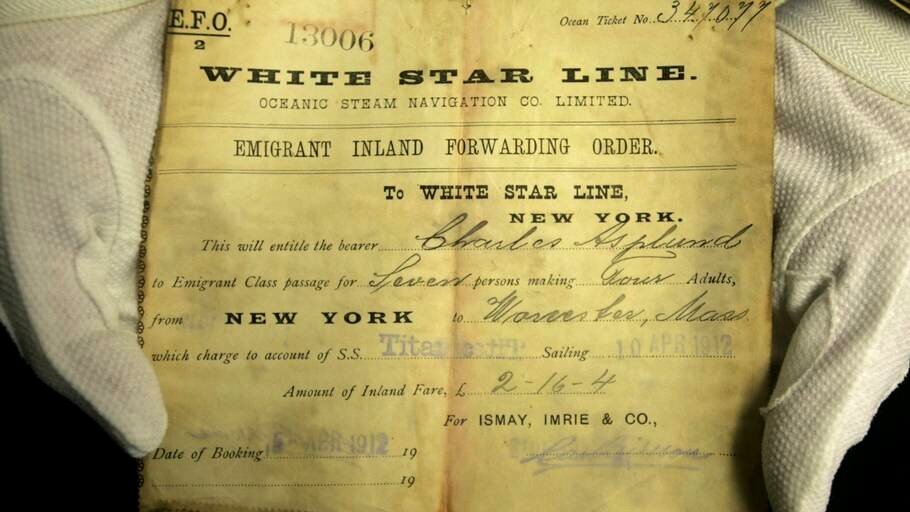 E.F.O.
2
13006
Ocean Ticket No. 347077
WHITE STAR LINE.
OCEANIC STEAM NAVIGATION CO. LIMITED.
EMIGRANT INLAND FORWARDING ORDER.
To WHITE STAR LINE,
NEW YORK.
This will entitle the bearer Charles Asplund
to Emigrant Class passage for Seven persons making Four Adults,
from NEW YORK to Worcester, Mass.
which charge to account of S.S. Titanic Sailing 10 APR 1912
Amount of Inland Fare, £ 2-16-4
For ISMAY, IMRIE & CO.,
Date of Booking APR 1912 19
19